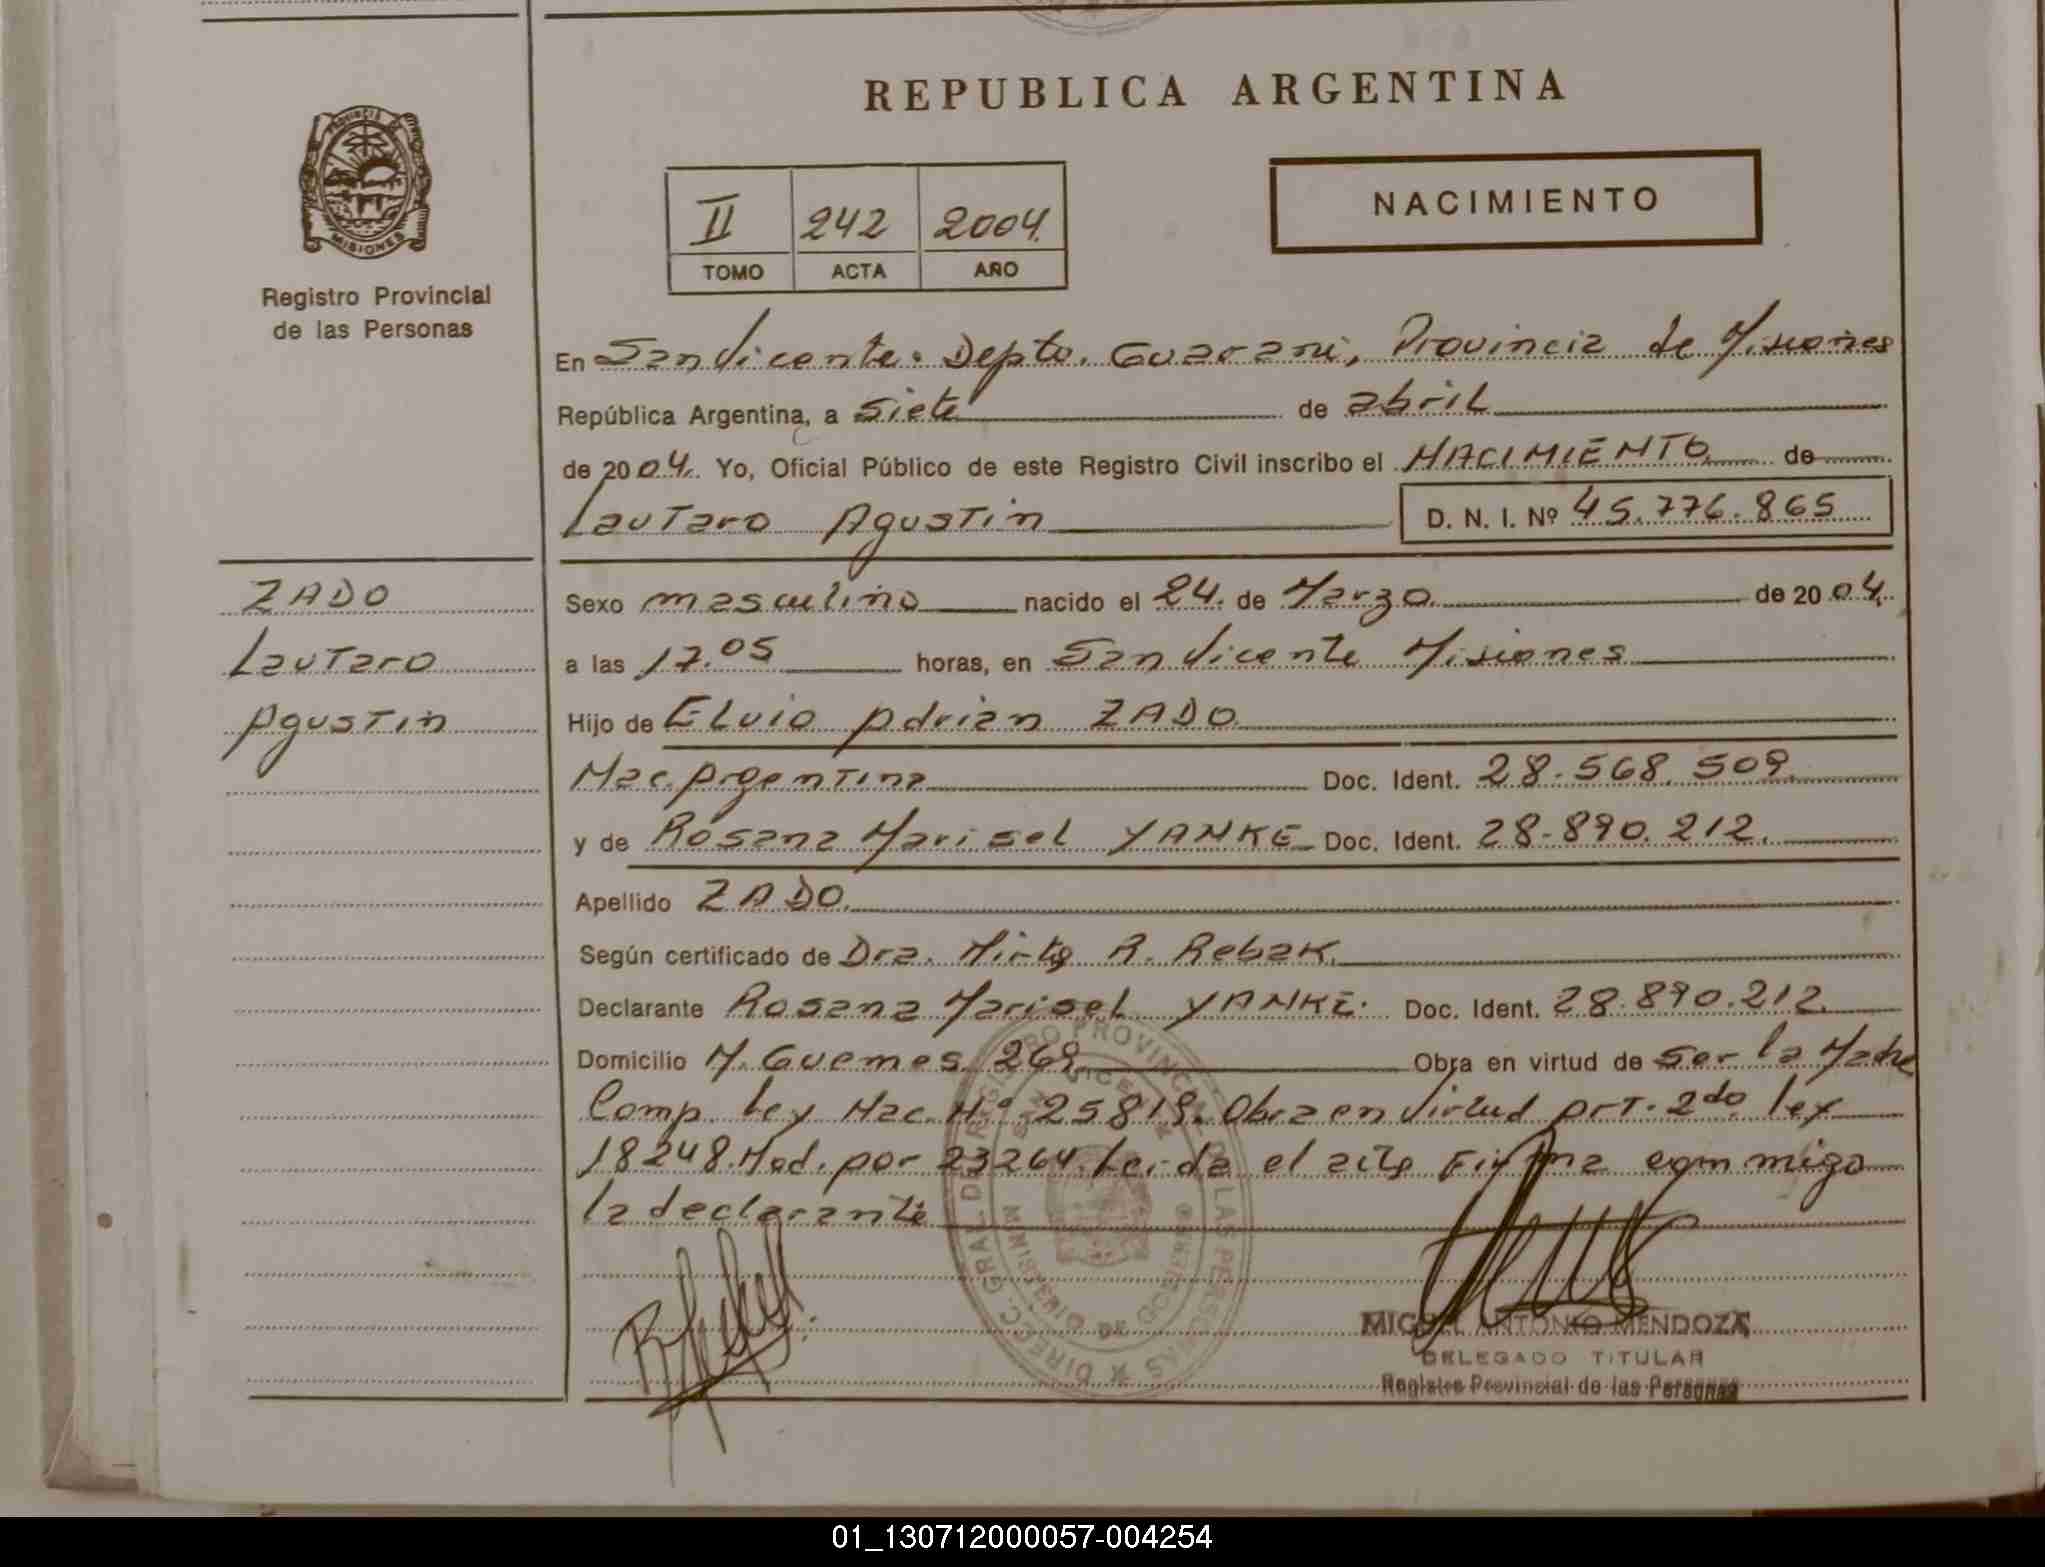 REPUBLICA ARGENTINA
PROVINCIA DE
MISIONES
Registro Provincial
de las Personas
II 242 2004.
TOMO ACTA AÑO
NACIMIENTO
En San Vicente. Depto. Guarani, Provincia de Misiones
República Argentina, a siete de abril
de 2004. Yo, Oficial Público de este Registro Civil inscribo el NACIMIENTO de
Lautaro Agustin D. N. I. Nº 45.776.865
ZADO
Lautaro
Agustin
Sexo masculino nacido el 24. de Marzo de 2004.
a las 17.05 horas, en San Vicente Misiones
Hijo de Elvio Adrian ZADO
Nac. Argentina Doc. Ident. 28.568.509.
y de Rosana Marisel YANKE Doc. Ident. 28.890.212.
Apellido ZADO.
Según certificado de Dra. Mirta R. Rebak.
Declarante Rosana Marisel YANKE. Doc. Ident. 28.890.212.
Domicilio M. Guemes 269. Obra en virtud de ser la Madre
Comp. Ley Nac. Nº 25819. Obra en Virtud Art. 2do Ley
18248. Mod. por 23264. Leida el acta Firma conmigo
la declarante
DIREC. GRAL. DEL REGISTRO PROVINCIAL DE LAS PERSONAS
MINISTERIO DE GOBIERNO
SAN VICENTE
MIGUEL ANTONIO MENDOZA
DELEGADO TITULAR
Registro Provincial de las Personas
01_130712000057-004254